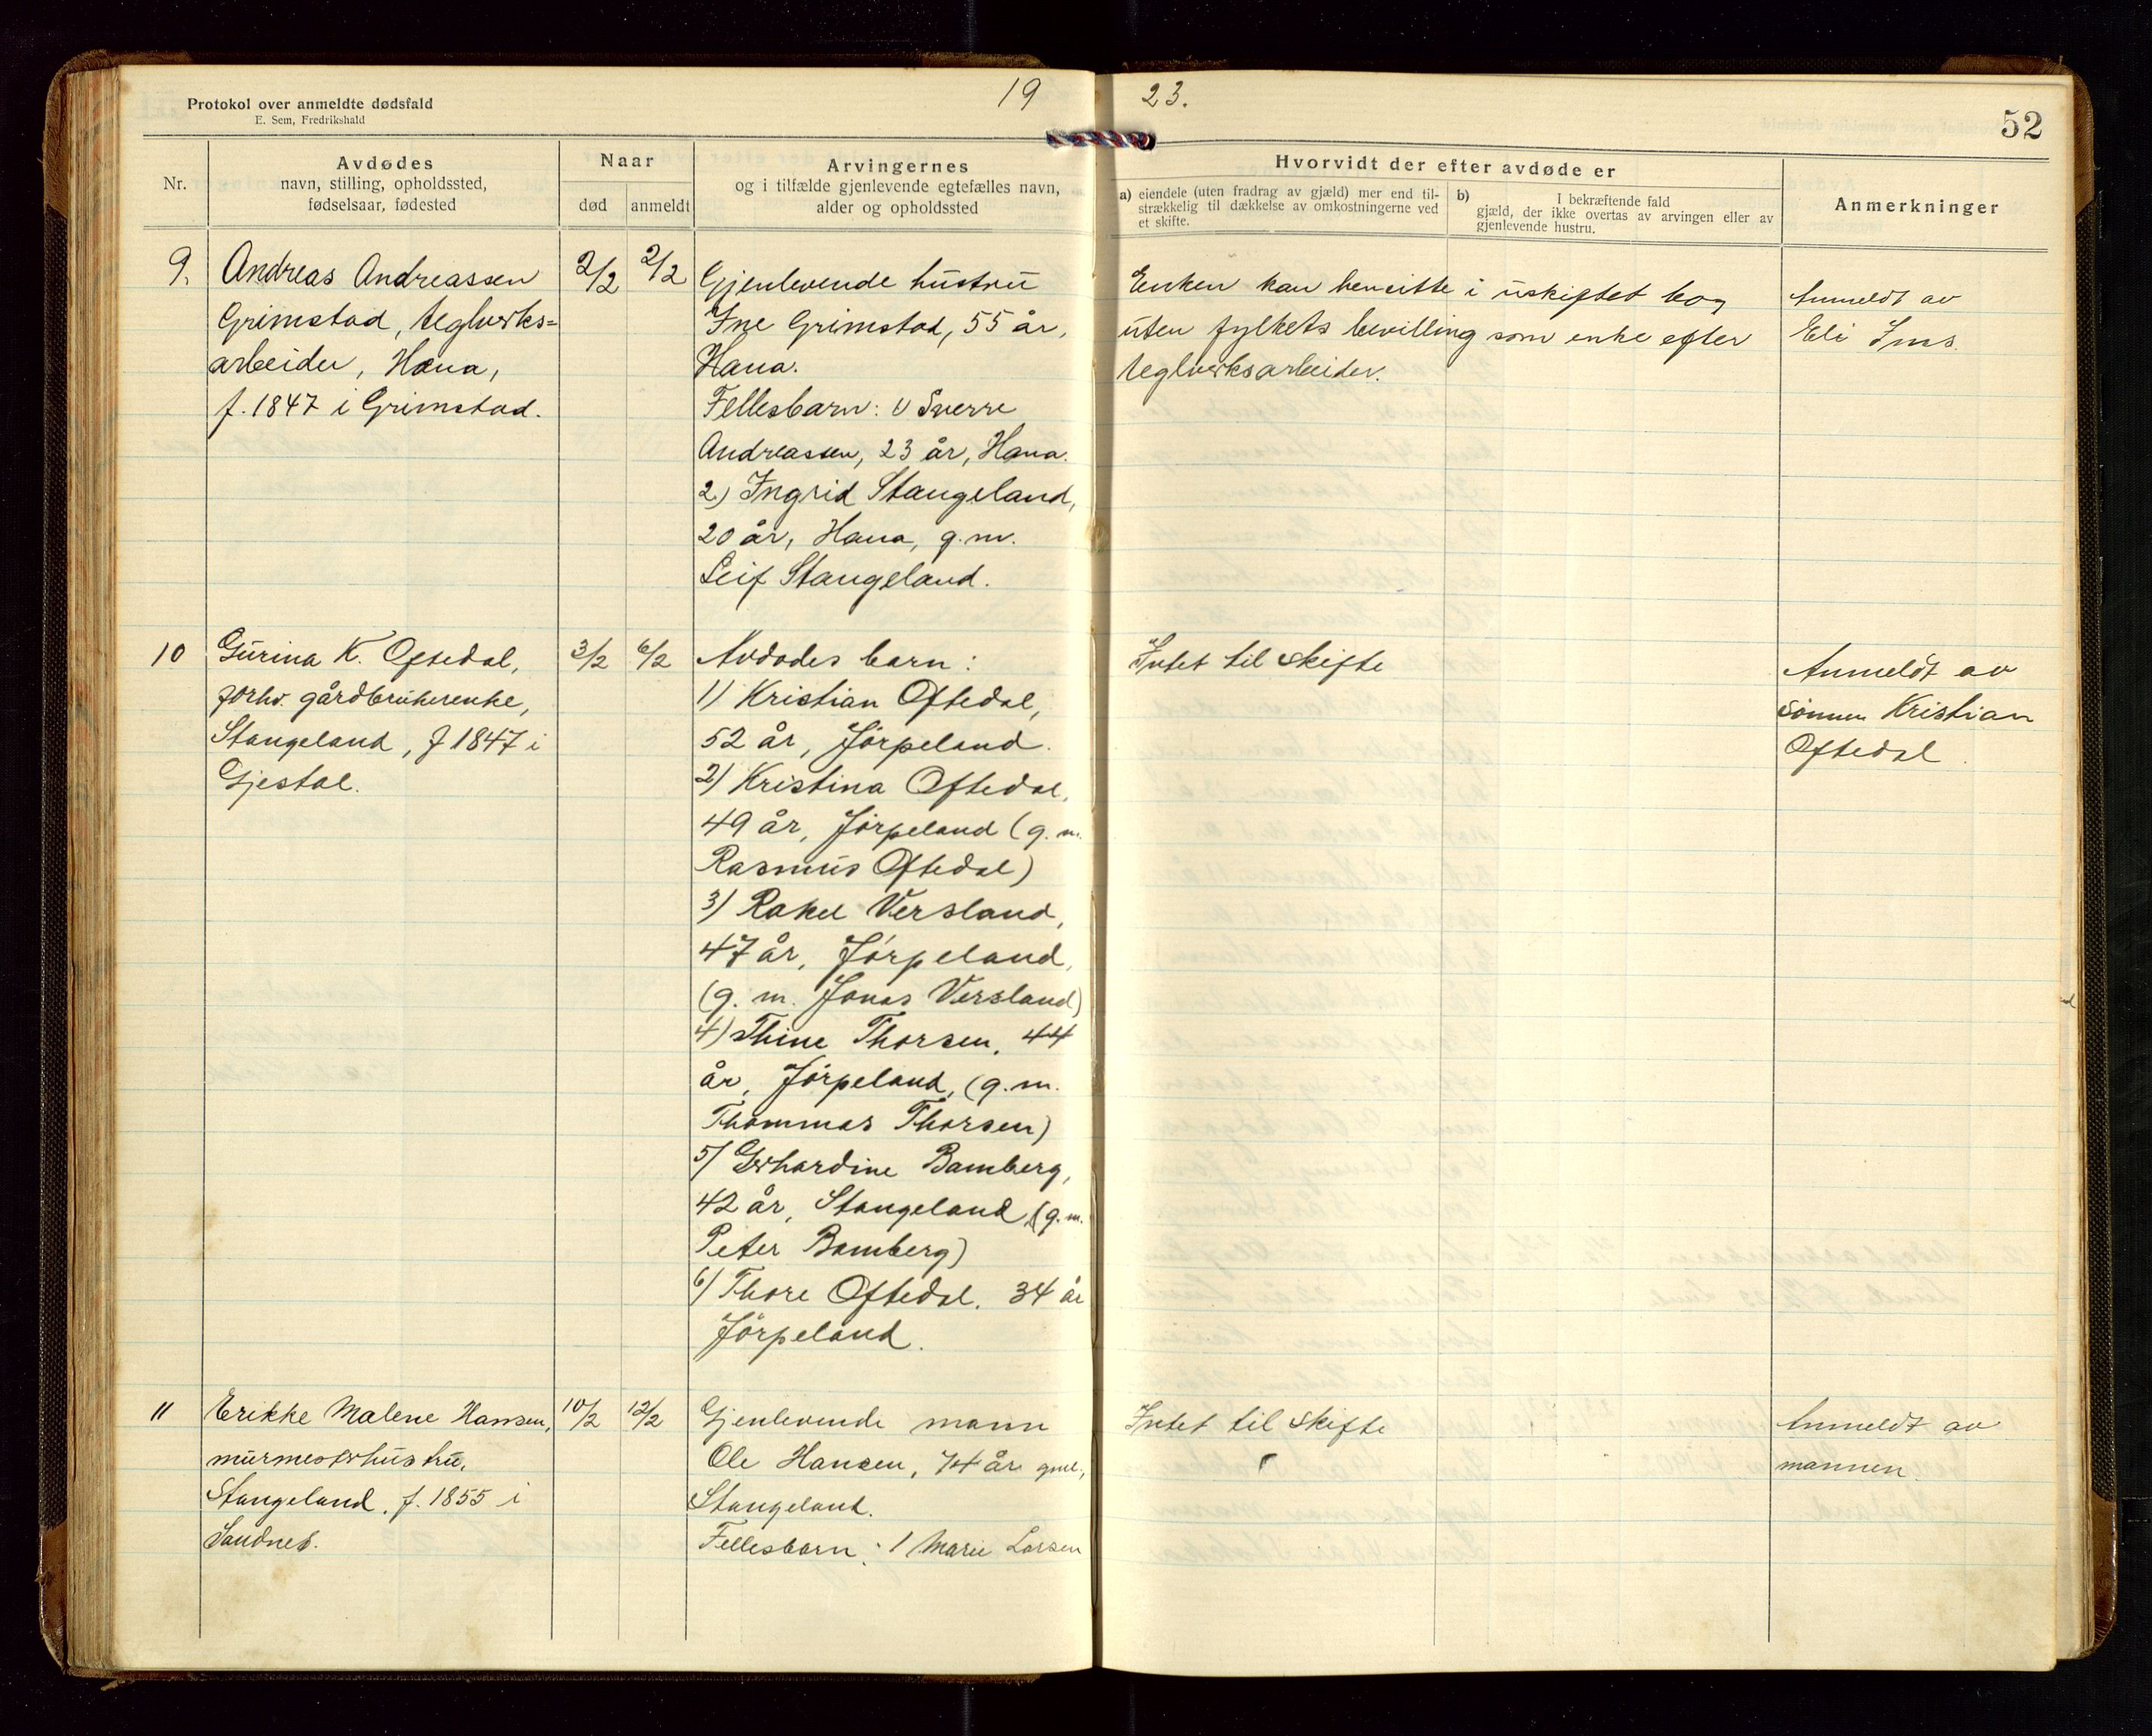 Protokol over anmeldte dødsfald
E. Sem, Fredrikshald
19
23.
52
Nr.
Avdødes
navn, stilling, opholdssted,
fødselsaar, fødested
Naar
død
anmeldt
Arvingernes
og i tilfælde gjenlevende egtefælles navn,
alder og opholdssted
Hvorvidt der efter avdøde er
a) eiendele (uten fradrag av gjæld) mer end til-
strækkelig til dækkelse av omkostningerne ved
et skifte.
b) I bekræftende fald
gjæld, der ikke overtas av arvingen eller av
gjenlevende hustru.
Anmerkninger
9.
Andreas Andreassen
Grimstad, teglverks=
arbeider, Hana,
f. 1847 i Grimstad.
2/2
2/2
Gjenlevende hustru
Ine Grimstad, 55 år,
Hana.
Fellesbarn: 1) Sverre
Andreassen, 23 år, Hana.
2) Ingrid Stangeland,
20 år, Hana, g.m.
Leif Stangeland.
Enken kan hensitte i uskiftet bo
uten fylkets bevilling som enke efter
teglverksarbeider.
Anmeldt av
Eli Ims.
10
Gurina K. Oftedal,
forhv. gårdbrukerenke,
Stangeland, f 1847 i
Gjestal.
3/2
6/2
Avdødes barn:
1) Kristian Oftedal,
52 år, Jørpeland.
2) Kristina Oftedal,
49 år, Jørpeland (g. m.
Rasmus Oftedal)
3) Rakel Versland,
47 år, Jørpeland,
(g. m. Jonas Versland)
4) Thine Thorsen, 44
år, Jørpeland, (g.m.
Thommas Thorsen)
5) Gerhardine Bamberg,
42 år, Stangeland (g.m.
Peter Bamberg)
6) Thore Oftedal. 34 år
Jørpeland.
Intet til skifte
Anmeldt av
sønnen Kristian
Oftedal.
11
Erikke Malene Hansen,
murmesterhustru,
Stangeland. f. 1855 i
Sandnes.
10/2
12/2
Gjenlevende mann
Ole Hansen, 74 år gml.,
Stangeland.
Fellesbarn: 1 Marie Larsen
Intet til skifte
Anmeldt av
mannen.